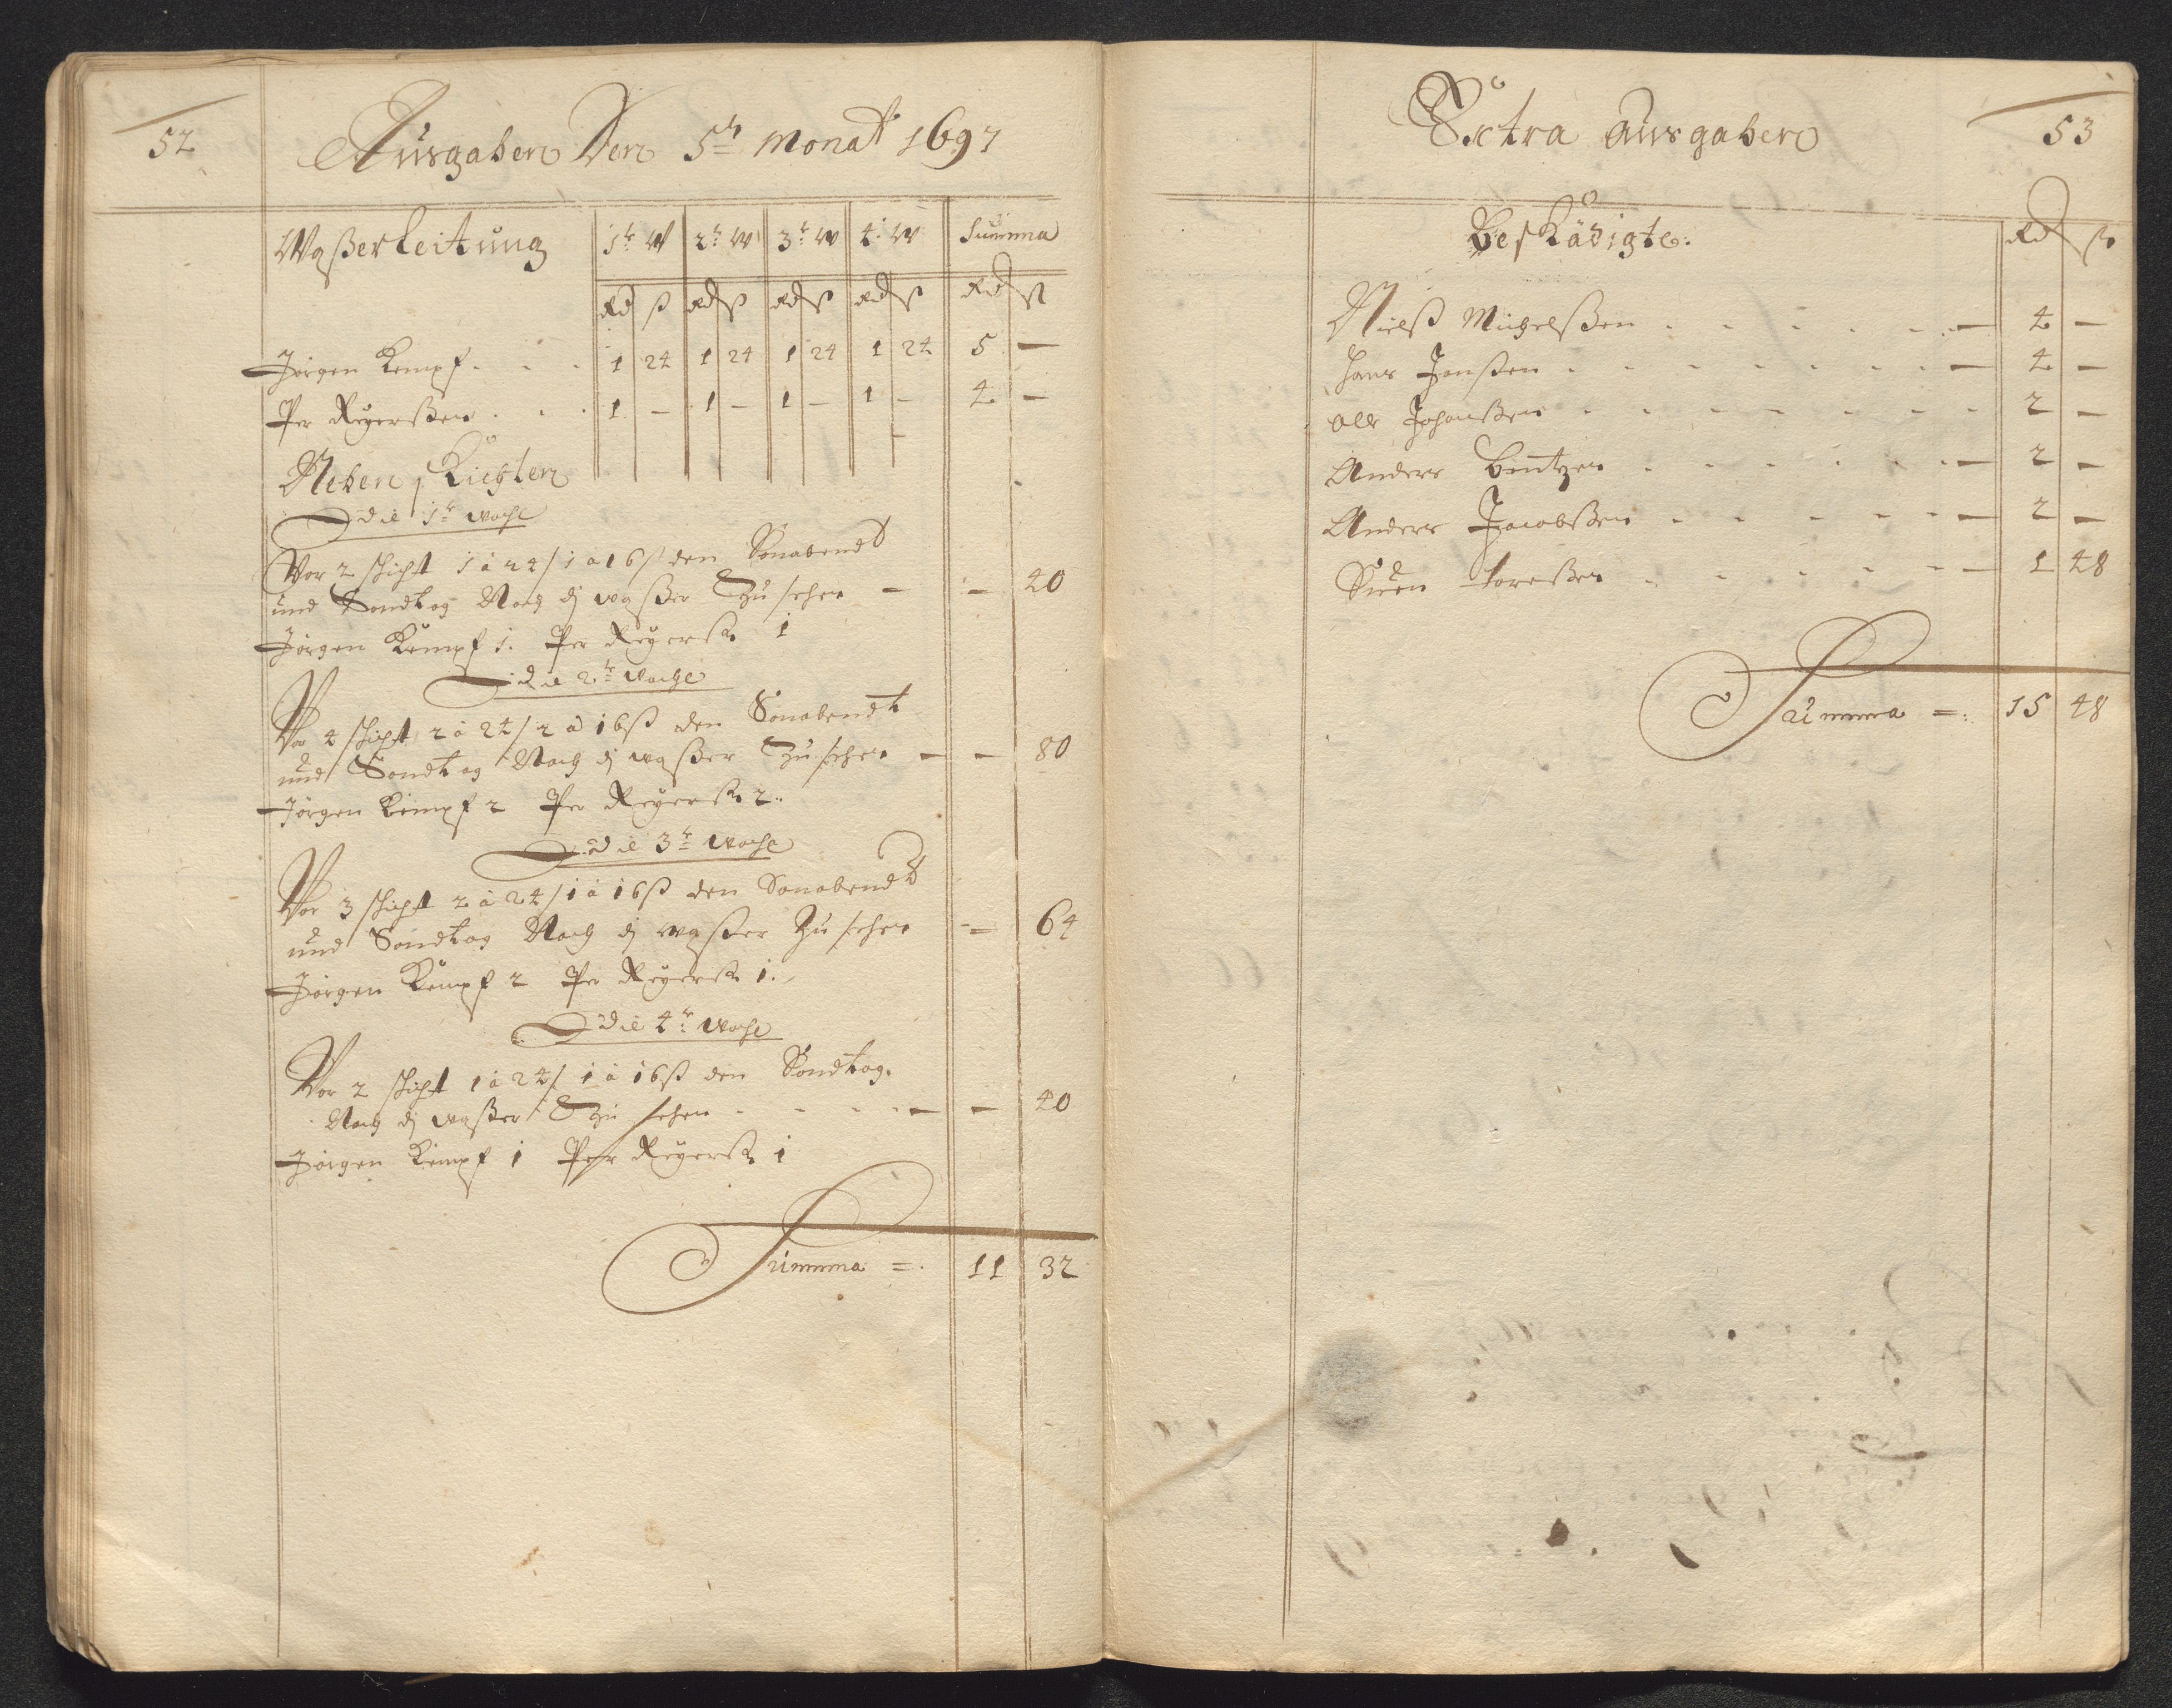 52
Ausgaben Den 5th Monat 1697
Waßerleitung 1te W 2te W 3te W 4te W Summa
Rd ß Rd ß Rd ß Rd ß Rd ß
Jørgen Kempf 1 24 1 24 1 24 1 24 5 —
Per Reyerßen 1 — 1 — 1 — 1 — 4 —
Neben Schigten
die 1te Woche
Vor 2 schicht 1 à 24/ 1 à 16 ß den Sonabendt
und Sondtag Nach dz waßer Zu sehen — — 40
Jørgen Kempf 1. Per Reyerß. 1
die 2te Woche
Vor 4 schicht 2 à 24/ 2 à 16 ß den Sonabendt
und Sondtag Nach dz waßer Zu sehen — — 80
Jørgen Kempf 2 Per Reyerß. 2.
die 3te Woche
Vor 3 schicht 2 à 24/ 1 à 16 ß den Sonabendt
und Sondtag Nach dz waßer Zu sehen — 64
Jørgen Kempf 2 Per Reyerß. 1.
die 4te Woche
Vor 2 schicht 1 à 24/ 1 à 16 ß den Sondtag.
Nach dz waßer Zu sehen — — 40
Jørgen Kempf 1 Per Reyerß. 1
Summa =. 11 32
Extra Ausgaben
53
Beskädigte. Rd ß
Nielß Michelßen — 4 —
Hans Janßen — 4 —
Olle Johanßen 2 —
Anders Bentzen — 2 —
Anders Jacobßen — 2 —
Suen Toreßen — 1 48
Summa =. 15 48